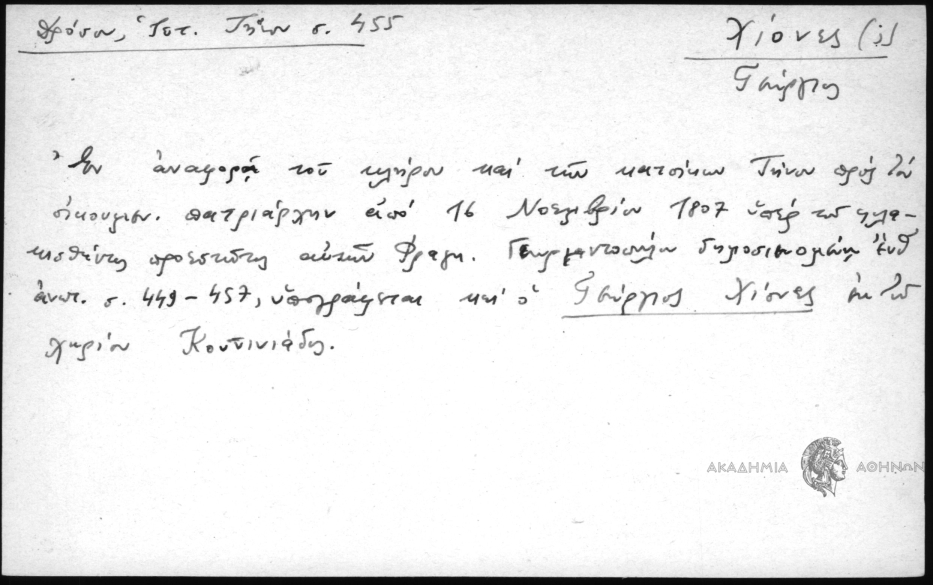 Δρόσου, Ἱστ. Τήνου σ. 455
Χιόνες (ὁ)
Γεώργιος
Ἐν ἀναφορᾷ τοῦ κλήρου καὶ τῶν κατοίκων Τήνου πρὸς τὸν
οἰκουμεν. πατριάρχην ἀπὸ 16 Νοεμβρίου 1807 ὑπὲρ τοῦ φυλα-
κισθέντος προεστῶτος αὐτῶν Φραγκ. δημοσιευομένῃ ἔνθ'
ἀνωτ. σ. 449-457, ὑπογράφεται καὶ ὁ Γεώργιος Χιόνες ἐκ τοῦ
χωρίου
ΑΚΑΔΗΜΙΑ ΑΘΗΝΩΝ